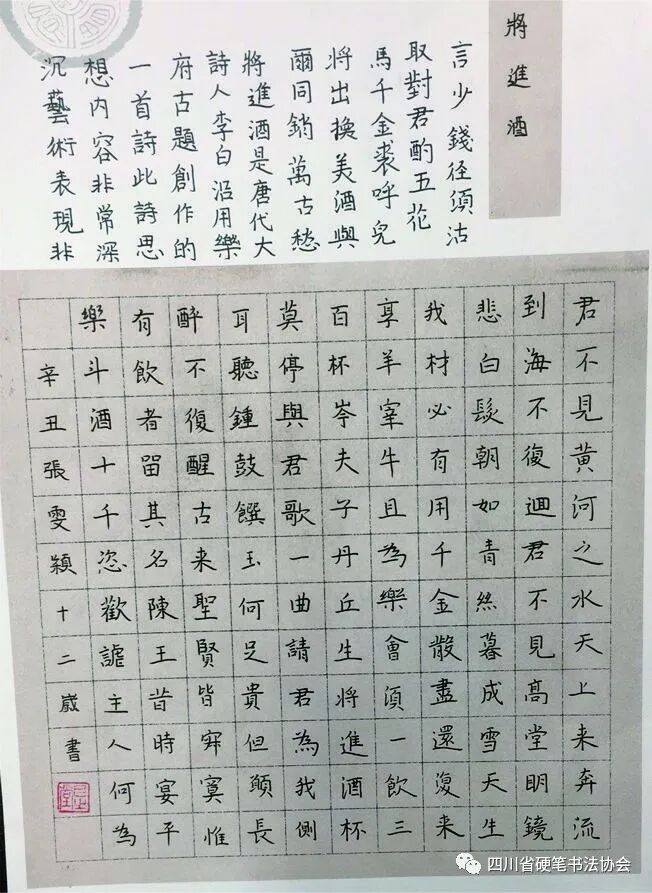 將進酒
言少錢径須沽
取對君酌五花
馬千金裘呼兒
將出換美酒與
爾同銷萬古愁
將進酒是唐代大
詩人李白沿用樂
府古題創作的
一首詩此詩思
想内容非常深
沉藝術表現非
君不見黃河之水天上来奔流
到海不復迴君不見高堂明鏡
悲白髮朝如青絲暮成雪天生
我材必有用千金散盡還復来
享羊宰牛且為樂會須一飲三
百杯岑夫子丹丘生將進酒杯
莫停與君歌一曲請君為我側
耳聽鍾鼓饌玉何足貴但願長
醉不復醒古来聖賢皆寂寞惟
有飲者留其名陳王昔時宴平
樂斗酒十千恣歡謔主人何為
辛丑張雯穎十二歲書
四川省硬笔书法协会